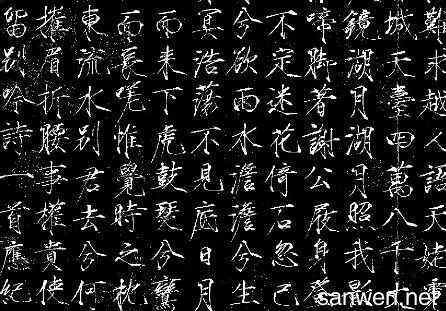 難求越人語天姥雲
城天臺四萬八千丈
鏡湖月湖月照我影
啼脚著謝公屐身登
不定迷花倚石忽已
兮欲雨水澹澹兮生
冥浩蕩不見底日月
而来下虎鼓瑟兮鸞
而長嗟惟覺時之枕
東流水别君去兮何
摧眉折腰事權貴使
留别吟詩一首應紀
sanwen.net